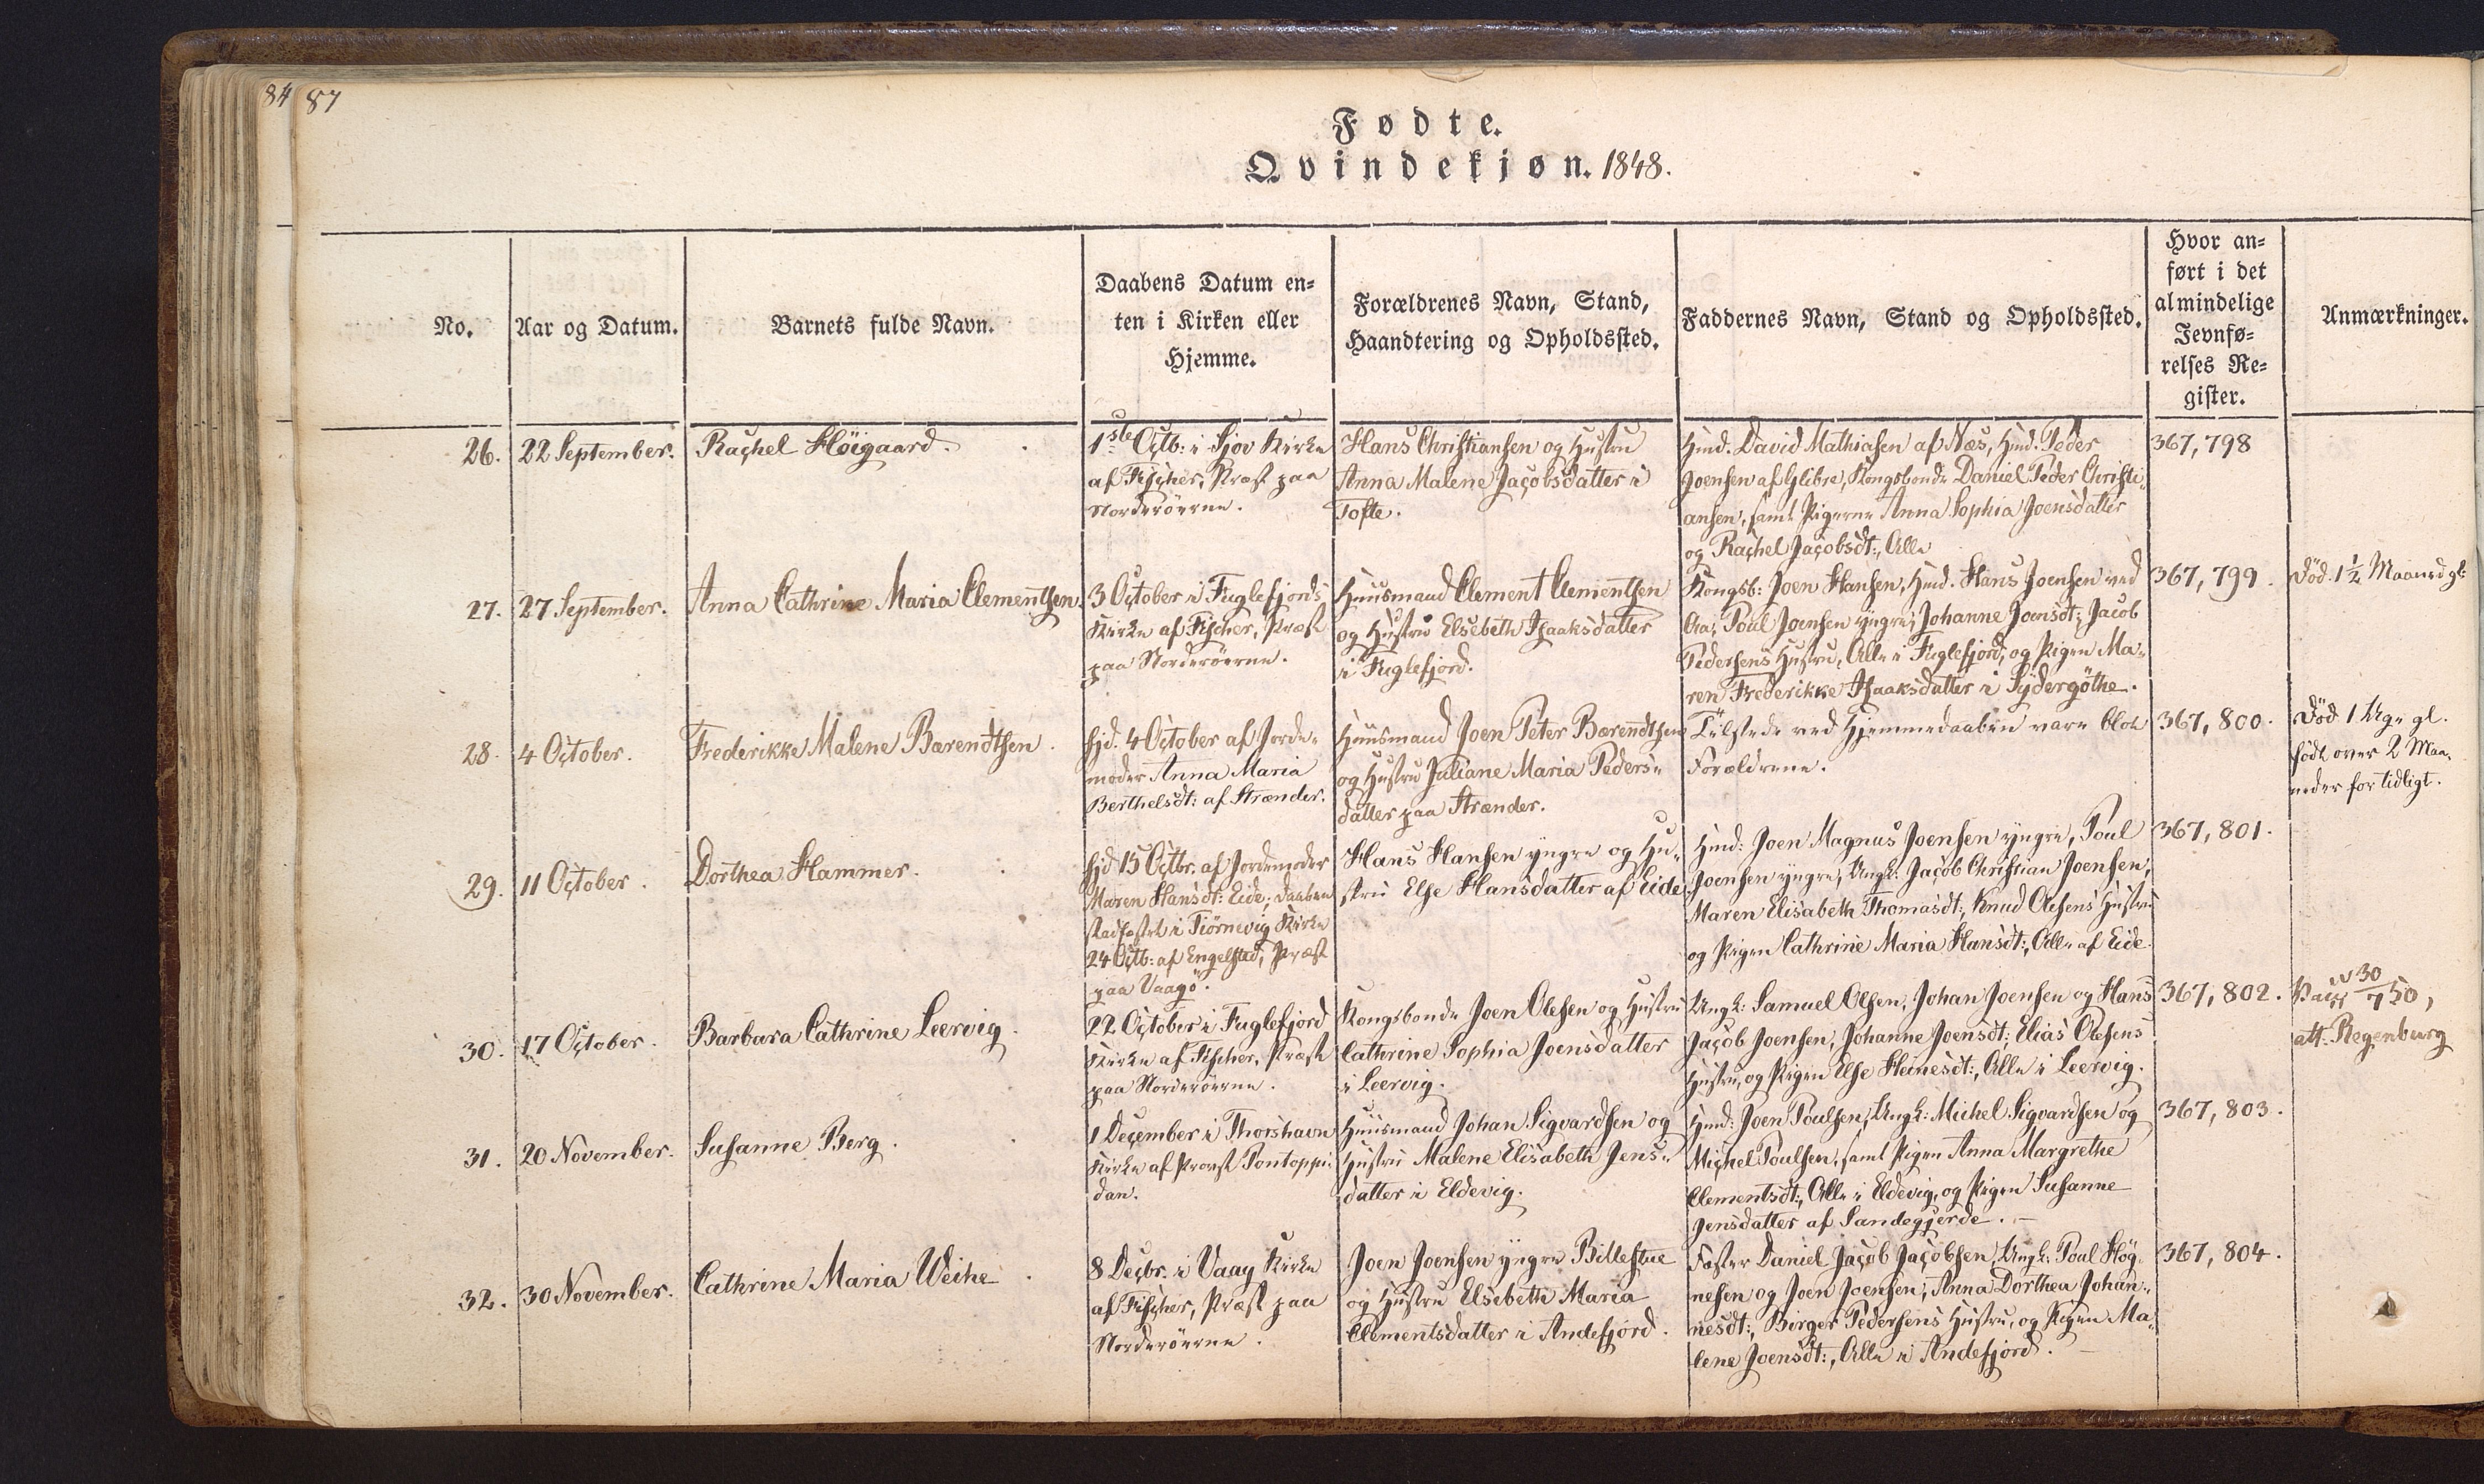 84 87
Fødte.
Qvindekjøn. 1848.
No.
Aar og Datum.
Barnets fulde Navn.
Daabens Datum en=
ten i Kirken eller
Hjemme.
Forældrenes Navn, Stand,
Haandtering og Opholdssted.
Faddernes Navn, Stand og Opholdssted.
Hvor an=
ført i det
almindelige
Jevnfø=
relses Re=
gister.
Anmærkninger.
26.
22 September.
Rachel Höigaard.
1ste Octb: i Sjov Kirke
af Fischer, Præst paa
Norderöerne.
Hans Christiansen og Hustru
Anna Malene Jacobsdatter i
Tofte.
Hmd. David Mathiasen af Næs, Hmd. Peder
Joensen af Glibre, Kongsbonde Daniel Peder Christi„
ansen, samt Pigerne Anna Sophia Joensdatter
og Rachel Jacobsdt:, Alle
367,798
27.
27 September.
Anna Cathrine Maria Clementsen.
3 October i Fuglefjords
Kirke af Fischer, Præst
paa Norderöerne.
Huusmand Clement Clementsen
og Hustru Elsebeth Isaaksdatter
i Fuglefjord.
Kongsb: Joen Hansen, Hmd. Hans Joensen ved
Aa, Poul Joensen yngre, Johanne Joensdt:, Jacob
Pedersens Hustru, Alle i Fuglefjord, og Pigen Ma„
ren Frederikke Isaaksdatter i Sydergöthe.
367,799.
Död. 1 1/2 Maaned gl:
28.
4 October.
Frederikke Malene Barendtsen.
Hjd. 4 October af Jorde„
moder Anna Maria
Berthelsdt: af Strænder.
Huusmand Joen Peter Barendtsen
og Hustru Juliane Maria Peders„
datter paa Strænder.
Tilstede ved Hjemmedaaben vare blot
Forældrene.
367,800.
Död 1 Uge gl.
födt over 2 Maa„
neder for tidligt.
29.
11 October.
Dorthea Hammer.
Hjd 15 Octbr. af Jordemoder
Maren Hansdt: Eide; Daaben
stadfæstet i Tiörnevig Kirke
24 Octb: af Engelsted, Præst
paa Vaagö.
Hans Hansen yngre og Hu„
stru Else Hansdatter af Eide.
Hmd: Joen Magnus Joensen yngre, Poul
Joensen yngre, Ungk: Jacob Christian Joensen,
Maren Elisabeth Thomasdt:, Knud Olesens Hustru
og Pigen Cathrine Maria Hansdt:, Alle af Eide.
367,801.
30.
17 October.
Barbara Cathrine Leervig.
22 October i Fuglefjord
Kirke af Fischer, Præst
paa Norderöerne.
Kongsbonde Joen Olesen og Hustru
Cathrine Sophia Joensdatter
i Leervig.
Ungk: Samuel Olsen, Johan Joensen og Hans
Jacob Joensen, Johanne Joensdt:, Elias Olesens
Hustru, og Pigen Else Heinesdt:, Alle i Leervig.
367,802.
Vacc 30/7 50,
att. Regenburg
31.
20 November.
Susanne Berg.
1 December i Thorshavn
Kirke af Provst Pontoppi„
dan.
Huusmand Johan Sigvardsen og
Hustru Malene Elisabeth Jens„
datter i Eldevig.
Hmd: Joen Poulsen, Ungk: Michel Sigvardsen og
Michel Poulsen, samt Pigen Anna Margrethe
Clementsdt:, Alle i Eldevig, og Pigen Susanne
Jensdatter af Sandegjerde.
367,803.
32.
30 November.
Cathrine Maria Weihe.
8 Decbr. i Vaag Kirke
af Fischer, Præst paa
Norderöerne.
Joen Joensen yngre Billestue
og Hustru Elsebeth Maria
Clementsdatter i Andefjord.
Fæster Daniel Jacob Jacobsen, Ungk: Poul Høg„
nesen og Joen Joensen, Anna Dorthea Johan„
nesdt:, Birger Pedersens Hustru, og Pigen Ma„
lene Joensdt:, Alle i Andefjord.
367,804.